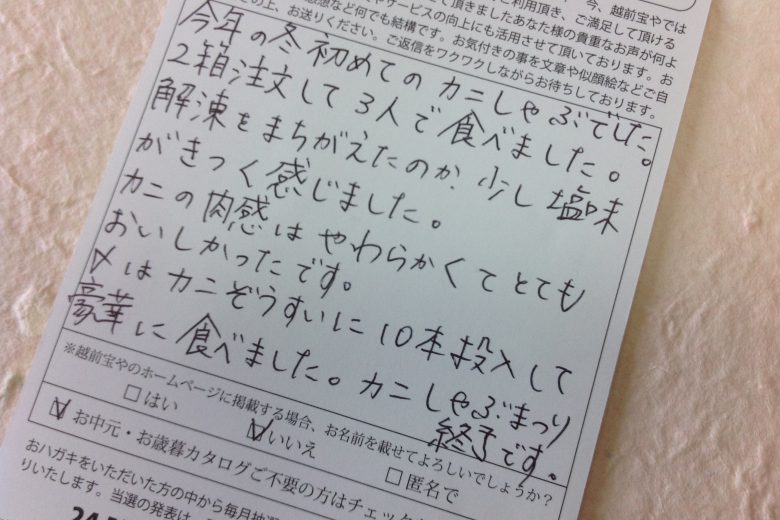 ご利用頂き、ご満足して頂ける
今、越前宝やでは
サービスの向上にも活用させて頂いております。お
て頂きましたあなた様の貴重なお声が何よ
の上、お送りください。ご返信をワクワクしながらお待ちしております。
感想など何でも結構です。お気付きの事を文章や似顔絵などご自
今年の冬初めてのカニしゃぶでした。
2箱注文して3人で食べました。
解凍をまちがえたのか、少し塩味
がきつく感じました。
カニの肉感はやわらかくてとても
おいしかったです。
〆はカニぞうすいに10本投入して
豪華に食べました。カニしゃぶまつり
終了です。
※越前宝やのホームページに掲載する場合、お名前を載せてよろしいでしょうか?
□はい ☑いいえ □匿名で
☑お中元・お歳暮カタログご不要の方はチェック
おハガキをいただいた方の中から毎月抽選
りいたします。当選の発表は、